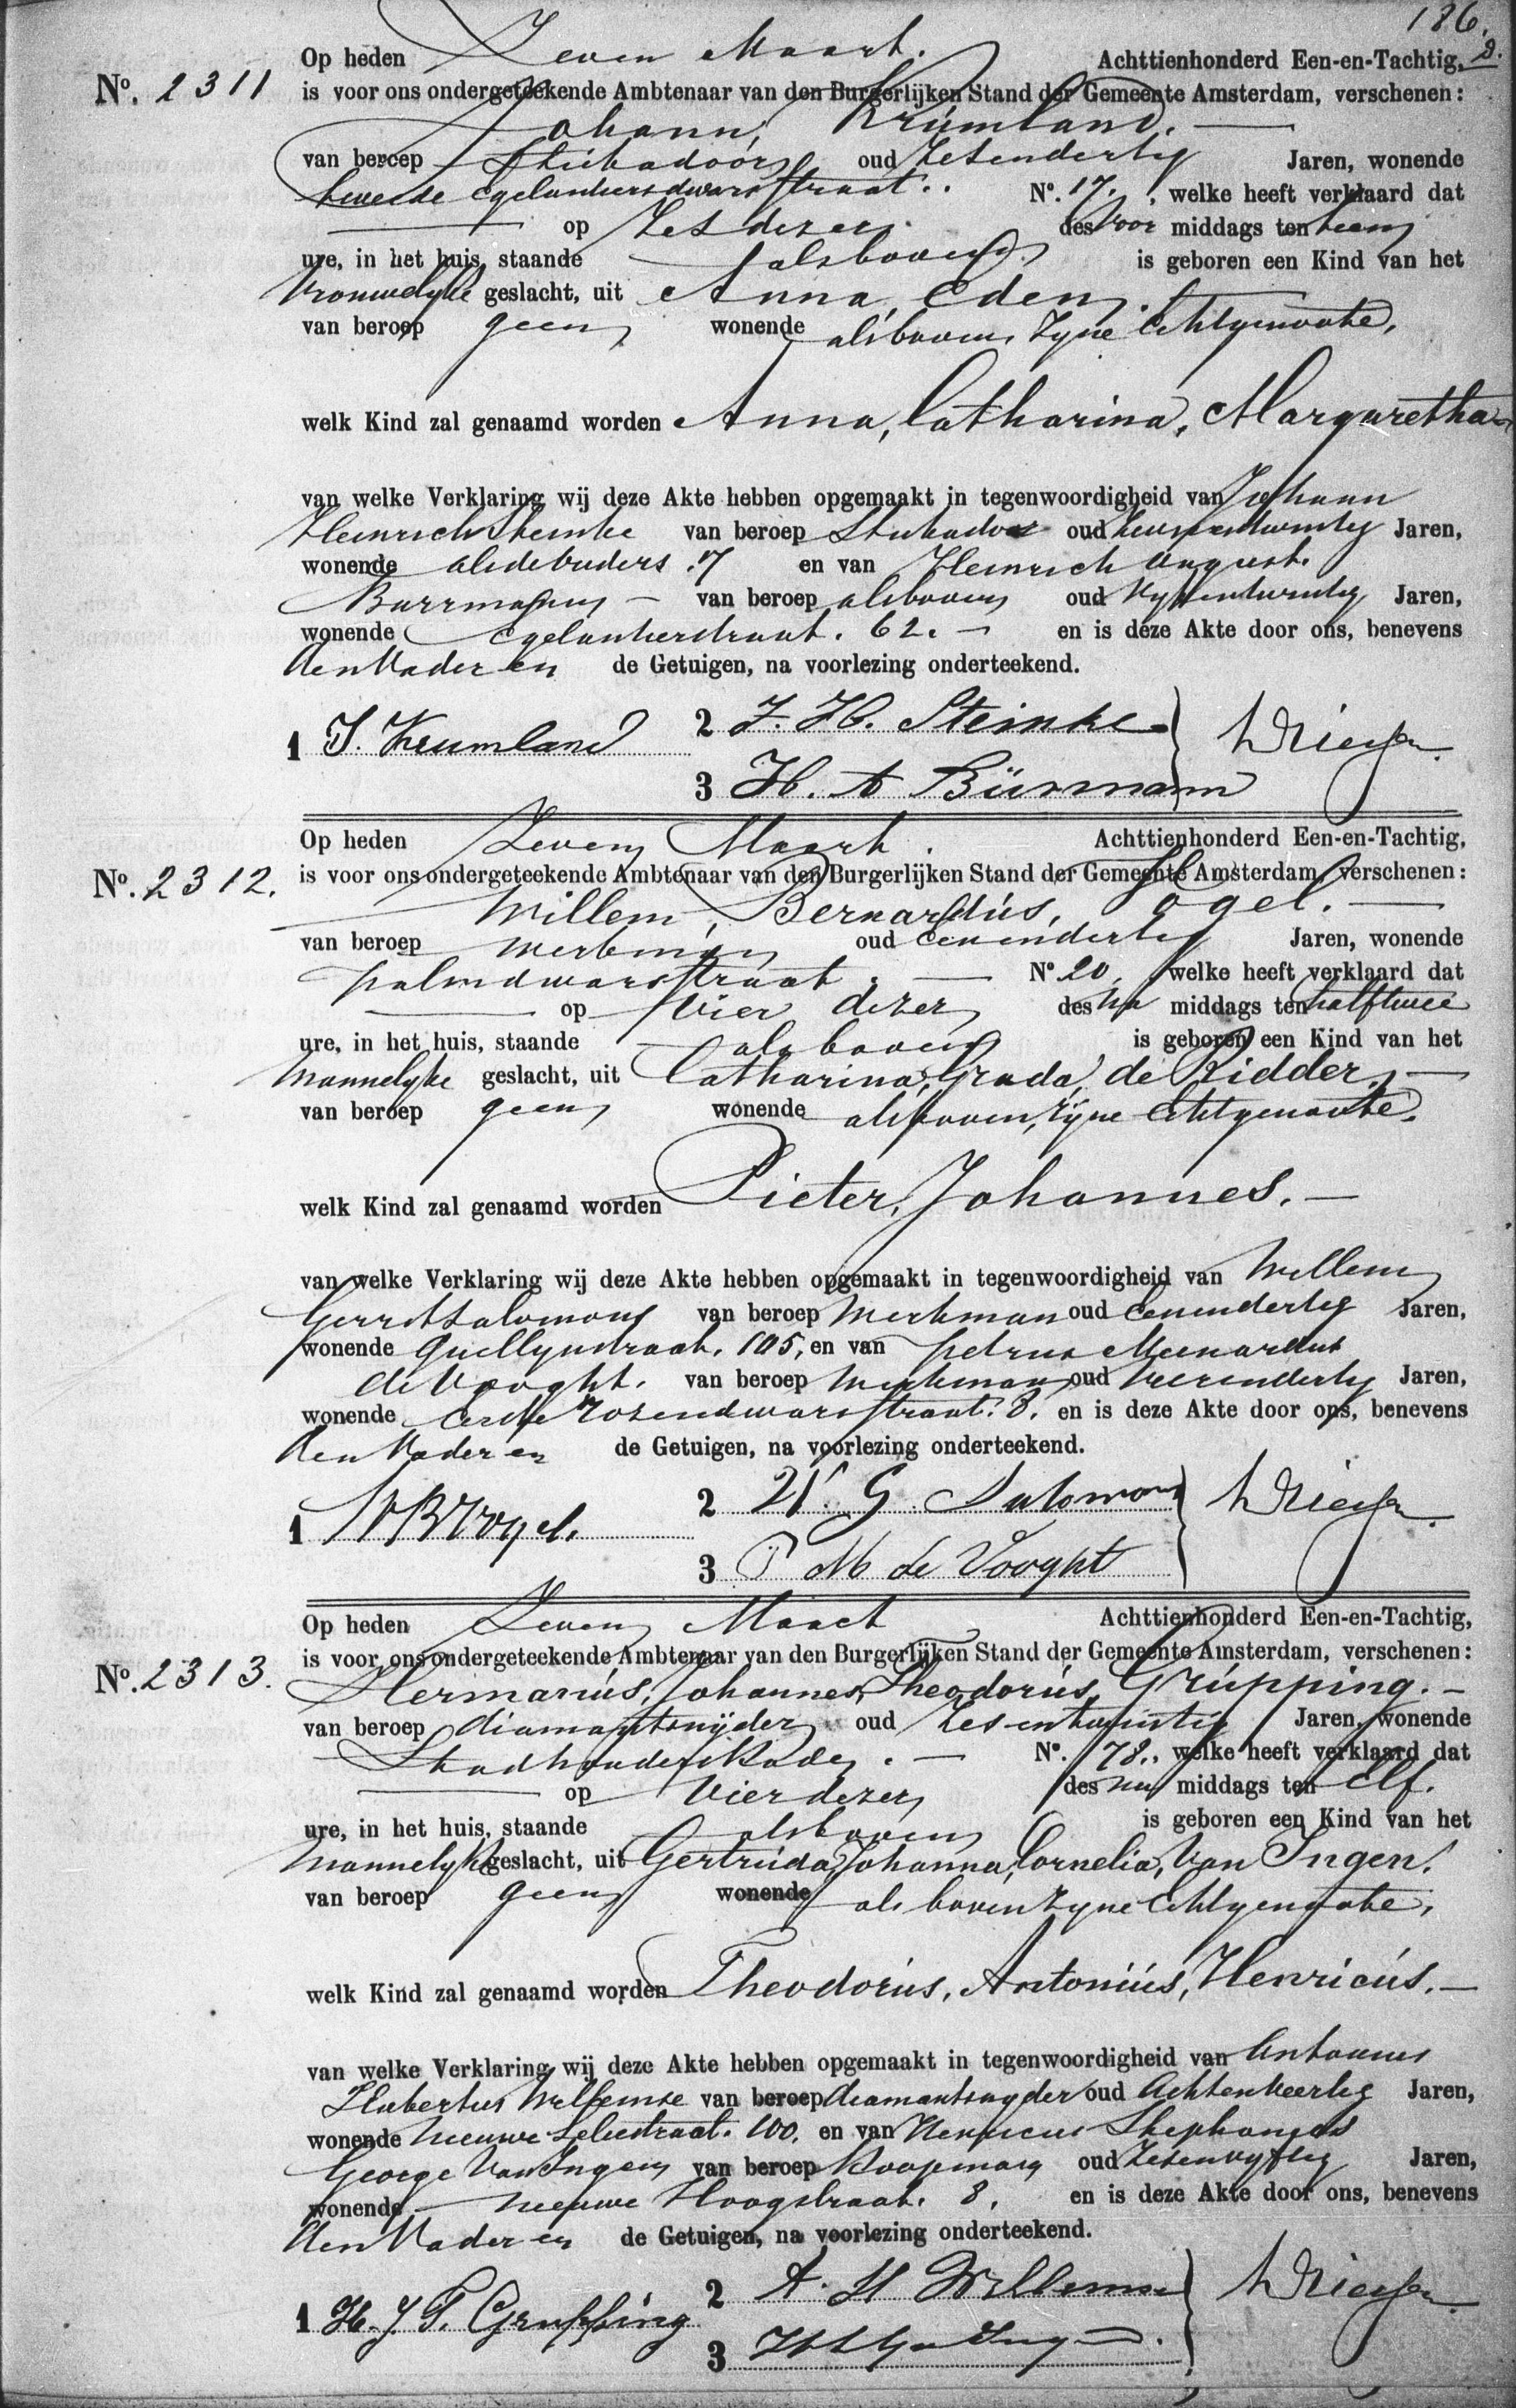 186.
Op heden Zeven Maart. Achttienhonderd Een-en-Tachtig,
No. 2311 is voor ons ondergeteekende Ambtenaar van den Burgerlijken Stand der Gemeente Amsterdam, verschenen:
Johann, Krümland.
van beroep Stukadoor oud Zesendertig Jaren, wonende
tweede Egelantiersdwarsstraat. No. 17. , welke heeft verklaard dat
op Zes dezer des Voor middags ten een
ure, in het huis, staande alsboven is geboren een Kind van het
Vrouwelijke geslacht, uit Anna, Eden,
van beroep geen wonende alsboven, zijne Echtgenoote,
welk Kind zal genaamd worden Anna, Catharina, Margaretha
van welke Verklaring wij deze Akte hebben opgemaakt in tegenwoordigheid van Johann
Heinrich Steinke van beroep Stukadoor oud Jaren,
wonende 17 en van Heinrich August
Burrmann van beroep alsboven oud Vijfentwintig Jaren,
wonende Egelantierstraat. 62. en is deze Akte door ons, benevens
den Vader en de Getuigen, na voorlezing onderteekend.
1 J. Krumland 2 J. H. Steinke
3 H. A Bürmann
Op heden Zeven Maart. Achttienhonderd Een-en-Tachtig,
No. 2312. is voor ons ondergeteekende Ambtenaar van den Burgerlijken Stand der Gemeente Amsterdam, verschenen:
Willem, Bernardús, Vogel.
van beroep werkman oud Eenendertig Jaren, wonende
palmdwarsstraat. No 20, welke heeft verklaard dat
op Vier dezer des na middags ten halftwee
ure, in het huis, staande alsboven is geboren een Kind van het
Mannelijke geslacht, uit Catharina, Grada, de Ridder,
van beroep geen wonende alsboven, zijne Echtgenoote.
welk Kind zal genaamd worden Pieter, Johannes.
van welke Verklaring wij deze Akte hebben opgemaakt in tegenwoordigheid van Willem
Gerrit Salomons van beroep Werkman oud Eenendertig Jaren,
wonende Quellynstraat. 105, en van petrus Meinardus
de Vooght. van beroep Werkman oud Jaren,
wonende Eerste rozendwarsstraat. 8. en is deze Akte door ons, benevens
den Vader en de Getuigen, na voorlezing onderteekend.
1 W B Vogel. 2 W. G. Salomons
3 P M de Vooght
Op heden Zeven Maart Achttienhonderd Een-en-Tachtig,
No. 2313. is voor ons ondergeteekende Ambtenaar van den Burgerlijken Stand der Gemeente Amsterdam, verschenen:
Hermanús, Johannes, Theodorús, Grúpping.
van beroep diamantsnijder oud Zesentwintig Jaren, wonende
Stadhouderskade. No. 78., welke heeft verklaard dat
op Vier dezer des na middags ten Elf.
ure, in het huis, staande alsboven is geboren een Kind van het
Mannelijke geslacht, uit Gertrúda, Johanna, Cornelia, Van Ingen.
van beroep geen wonende als boven zijne Echtgenoote,
welk Kind zal genaamd worden Theodorús, Antoniús, Henricús.
van welke Verklaring wij deze Akte hebben opgemaakt in tegenwoordigheid van Antonius
Hubertus Willemse van beroep diamantsnyder oud Achtenveertig Jaren,
wonende Nieuwe Leliestraat. 100. en van Henricus Stephanus
George Van Ingen van beroep Koopman oud Zesenvyftig Jaren,
wonende Nieuwe Hoogstraat. 8. en is deze Akte door ons, benevens
den Vader en de Getuigen, na voorlezing onderteekend.
1 H. J. T. Grupping 2 A. H Willemse
3